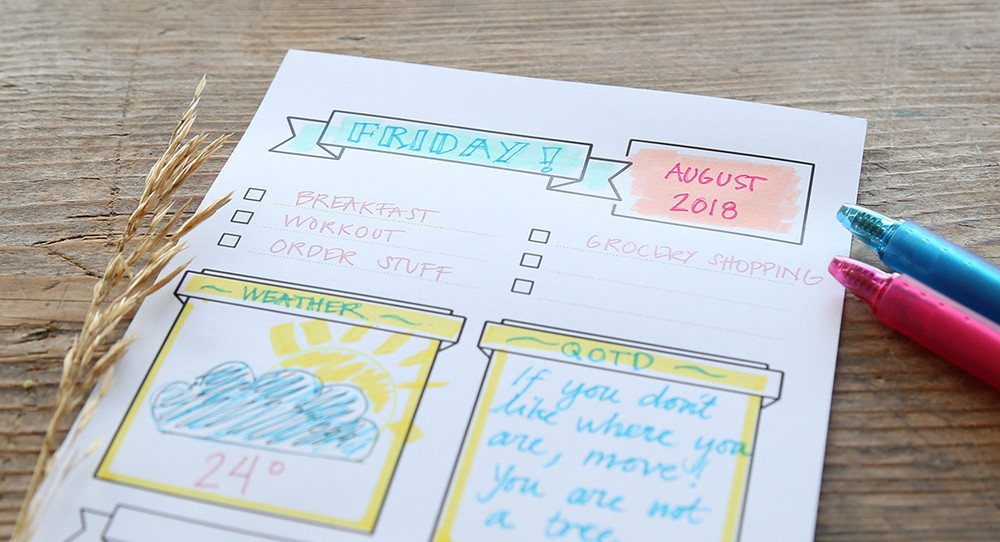 FRIDAY!
AUGUST
2018
BREAKFAST
WORKOUT
ORDER STUFF
GROCERY SHOPPING
~ WEATHER ~
24°
~ QOTD ~
If you don't
like where you
are, move!
You are not
a tree